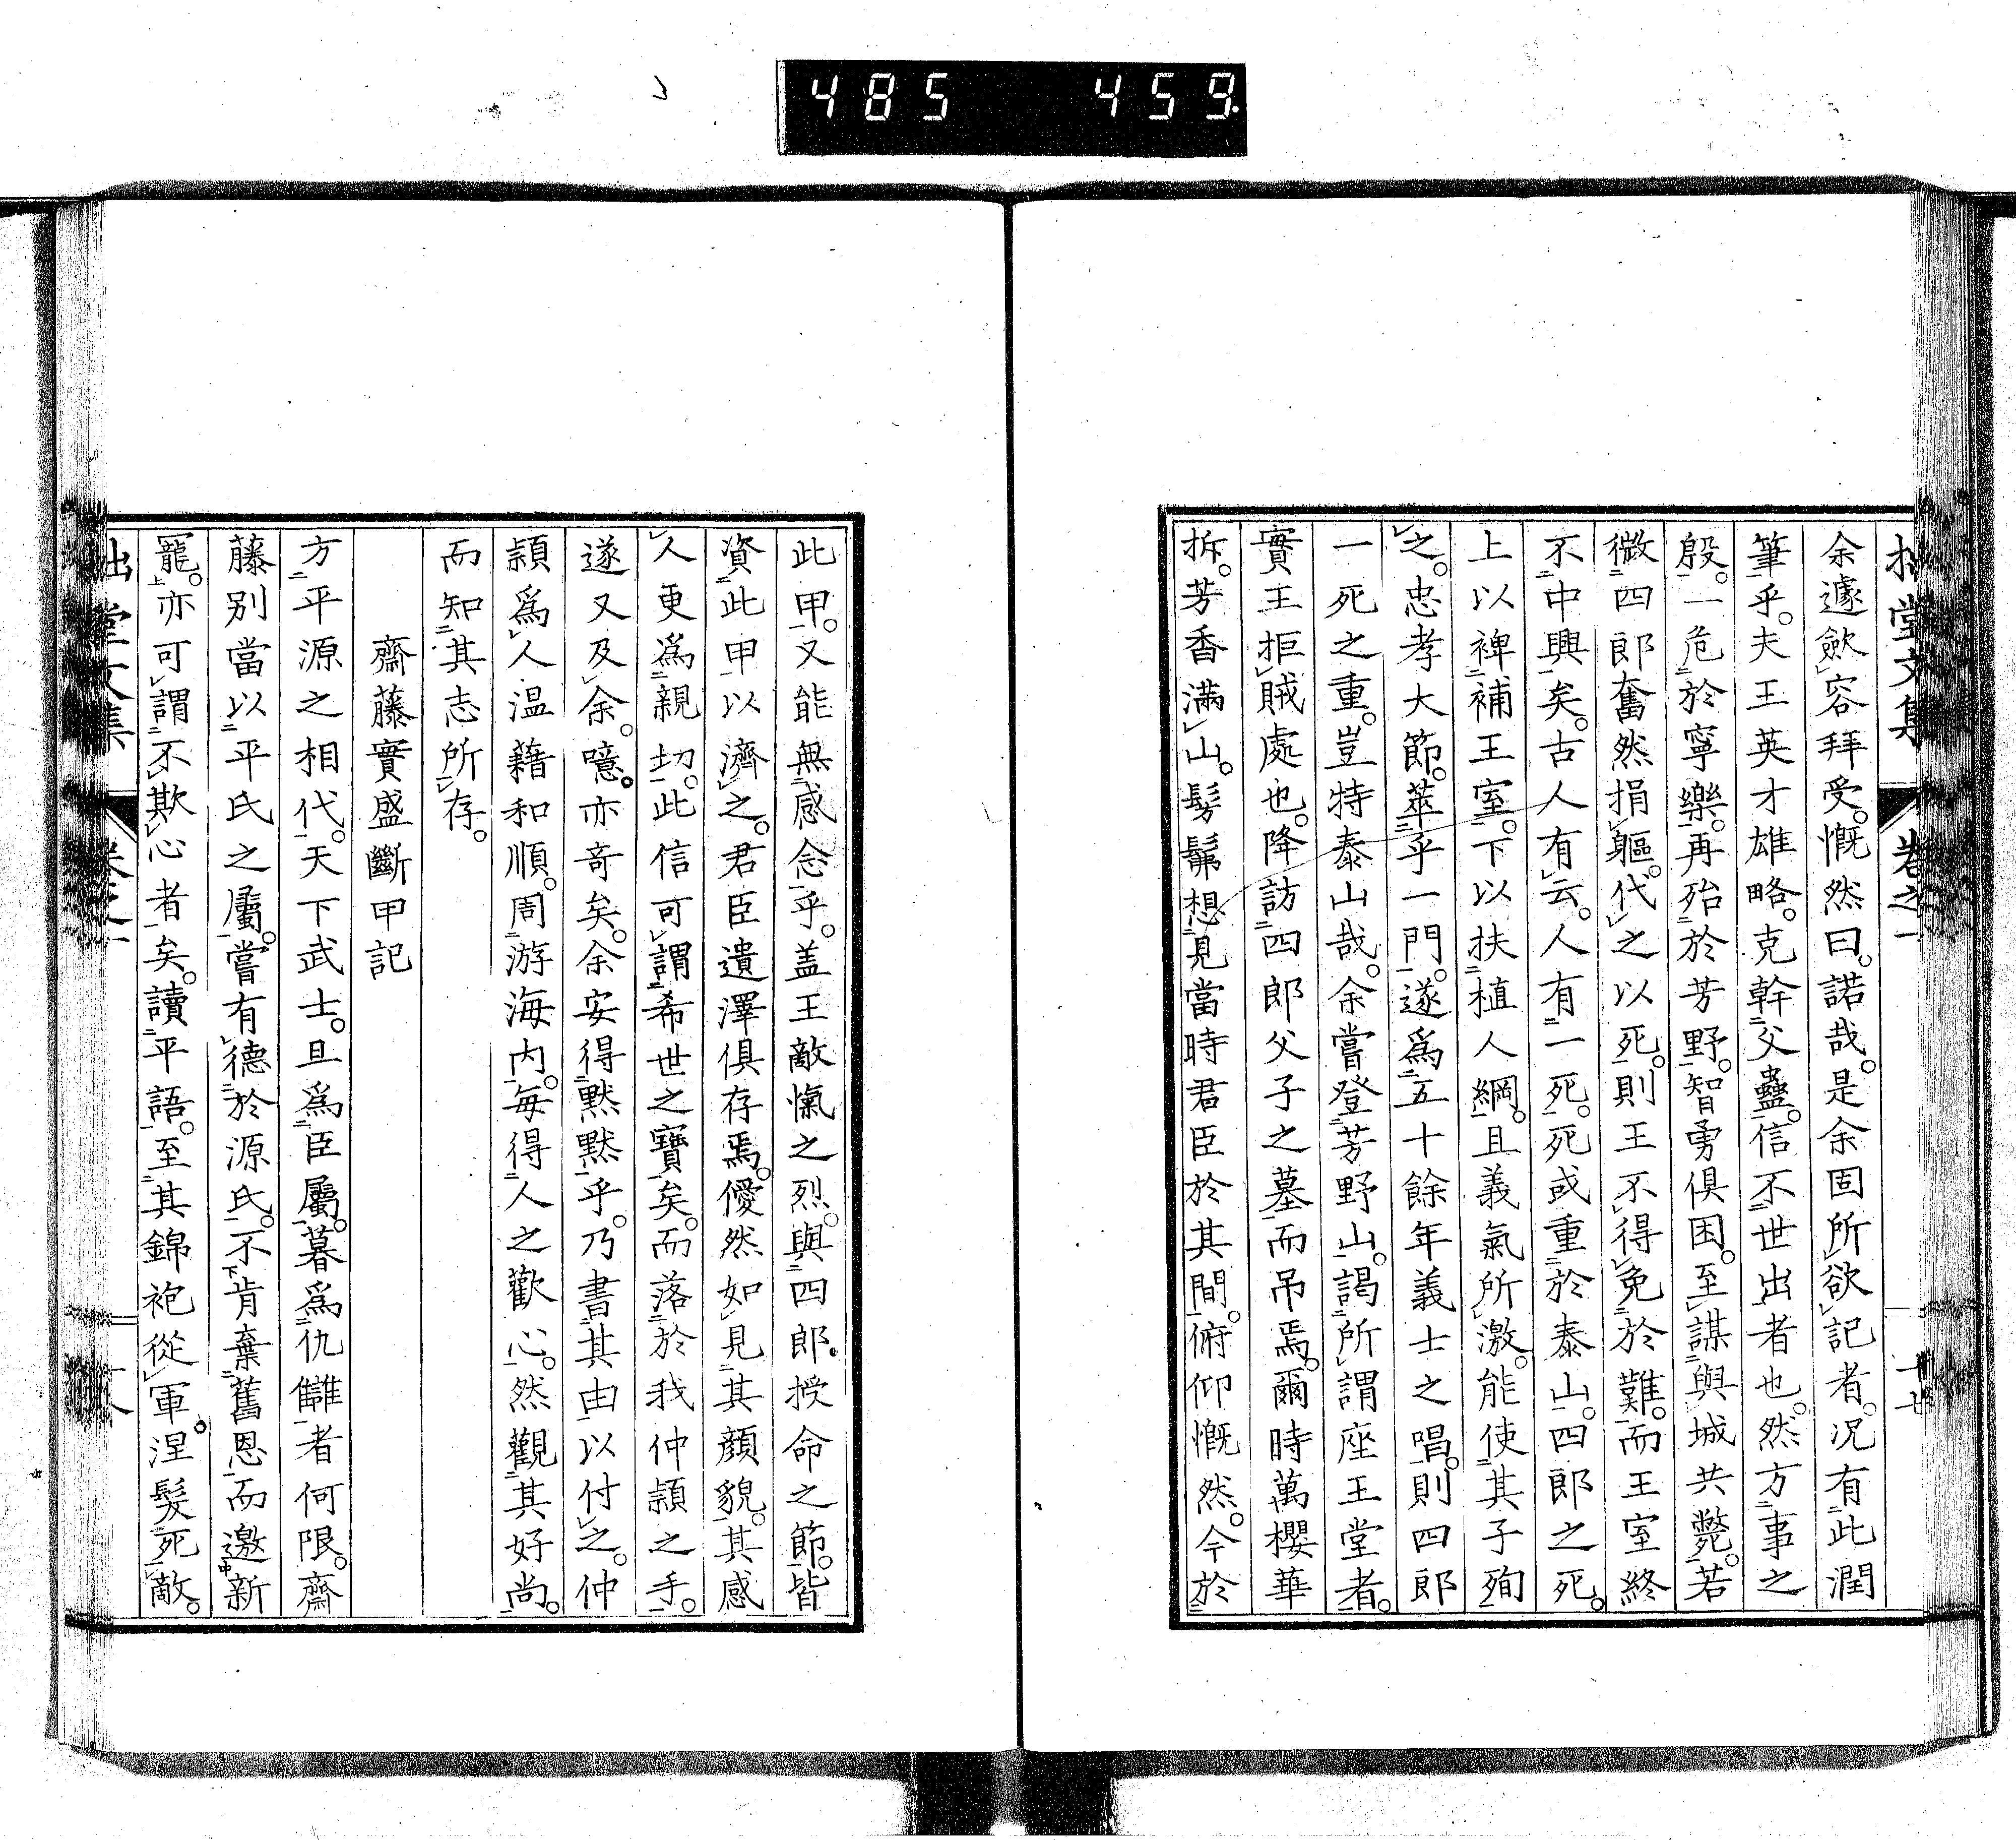 485 459.
堂文集 卷之一
余遽斂容拜受。慨然曰。諾哉。是余固所欲記者。況有此潤
筆乎。夫王英才雄略。克幹父蠱。信不世出者也。然方事之
殷。一危於寧樂。再殆於芳野。智勇俱困。至謀與城共斃。若
微四郎奮然捐軀。代之以死。則王不得免於難。而王室終
不中興矣。古人有云。人有一死。死或重於泰山。四郎之死。
上以裨補王室。下以扶植人綱。且義氣所激。能使其子殉
之。忠孝大節。萃乎一門。遂爲五十餘年義士之唱。則四郎
一死之重。豈特泰山哉。余嘗登芳野山。謁所謂座王堂者。
實王拒賊處也。降訪四郎父子之墓。而吊焉。爾時萬櫻華
拆。芳香滿山。髣髴想見當時君臣於其間。俯仰慨然。今於
此甲。又能無感念乎。盖王敵愾之烈。與四郎授命之節。皆
資此甲以濟之。君臣遺澤俱存焉。僾然如見其顏貌。其感
人更爲親切。此信可謂希世之寶矣。而落於我仲頴之手。
遂又及余。噫。亦奇矣。余安得默默乎。乃書其由以付之。仲
頴爲人温藉和順。周游海内。每得人之歡心。然觀其好尚。
而知其志所存。
齋藤實盛斷甲記
方平源之相代。天下武士。旦爲臣屬。暮爲仇讎者何限。齋
藤别當以平氏之屬。嘗有德於源氏。不肯棄舊恩而邀新
寵。亦可謂不欺心者矣。讀平語。至其錦袍從軍。涅髮死敵。
堂文集 卷之一